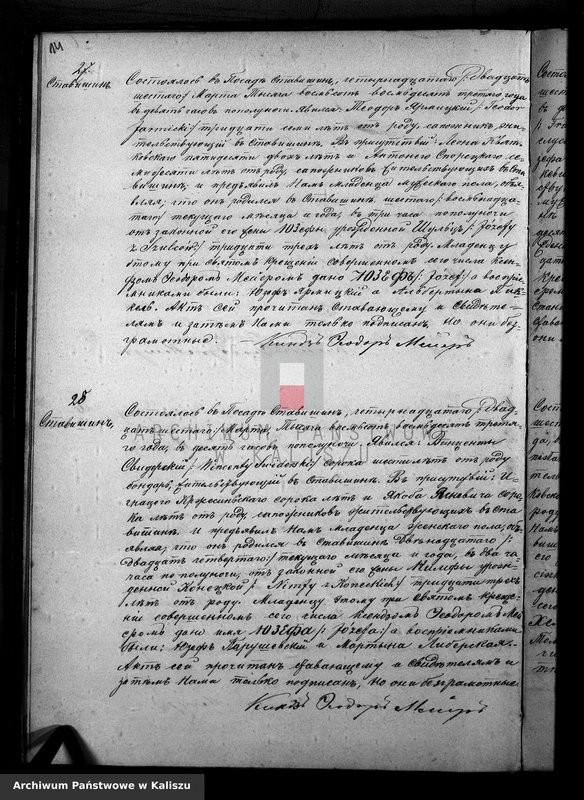 14
27
Ставишинъ
Состоялось въ Посадѣ Ставишинѣ, четырнадцатаго /: Двадцать
шестаго:/ Марта Тысяча восемьсотъ восемьдесятъ третяго года
въ девять часовъ пополуночи. Явился: Теодоръ Ярмицкій /: Teodor
Jarmicki:/ тридцати семи лѣтъ отъ роду, сапожникъ, жи-
тельствующій въ Ставишинѣ. Въ присутствіи: Леона Квят-
ковскаго пятидесяти двохъ лѣтъ и Антонего
семидесяти лѣтъ отъ роду, сапожниковъ жительствующихъ въ Ста-
вишинѣ, и предъявилъ Намъ Младенца мужескаго пола, объя-
вляя, что онъ родился въ Ставишинѣ, шестаго /: восемнадца-
таго:/ текущаго мѣсяца и года, въ три часа пополуночи
отъ законной его жены Юзефы, урожденной Шульцъ /: Józefy
z Szulców:/ тридцати трехъ лѣтъ отъ роду. Младенцу
этому при святомъ крещеніи совершенномъ сего числа Ксен-
дзомъ Теодоромъ Мейеромъ дано ЮЗЕФЪ /: Józef:/ а воспрі-
емниками были: Юзефъ Ярмицкій и Альбертина
Актъ сей прочитанъ ставающему и свидѣте-
лямъ и затѣмъ Нами только подписанъ, Но они без-
грамотные.
Ксендзъ Теодоръ Мейеръ
28
Ставишинъ,
Состоялось въ Посадѣ Ставишинѣ, четырнадцатаго /: Двад-
цать шестаго:/ Марта, Тысяча восемьсотъ восемьдесятъ третя-
го года, въ десять часовъ пополуночи. Явился: Винценты
Свидерскій /: Wincenty Swiderski:/ сорока шести лѣтъ отъ роду
бондарь, жительствующій въ Ставишинѣ. Въ присутствіи: И-
гнацего сорока лѣтъ и Якоба Яневича соро-
ка лѣтъ отъ роду, сапожниковъ жительствующихъ въ Ста-
вишинѣ. и предъявилъ Намъ Младенца женскаго пола, объ-
являя, что онъ родился въ Ставишинѣ Двѣнадцатаго /:
Двадцать четвертаго:/ текущаго мѣсяца и года, въ два ча-
са пополуночи, отъ законной его жены Нимфы урож-
денной Конецкой /: Nimfy z Koneckich:/ тридцати трехъ
лѣтъ отъ роду. Младенцу этому при святомъ креще-
ніи совершенномъ сего числа Ксендзомъ Теодоромъ Мей-
еромъ дано имя ЮЗЕФА /: Józefa:/ а воспріемниками
были: Юзефъ Марушевскій и Мартына Либерская.
Актъ сей прочитанъ ставающему и Свидѣтелямъ и
затѣмъ Нами только подписанъ, Но они безграмотные.
Ксендзъ Теодоръ Мейеръ
ARCHIWUM PAŃSTWOWE
W KALISZU
Archiwum Państwowe w Kaliszu